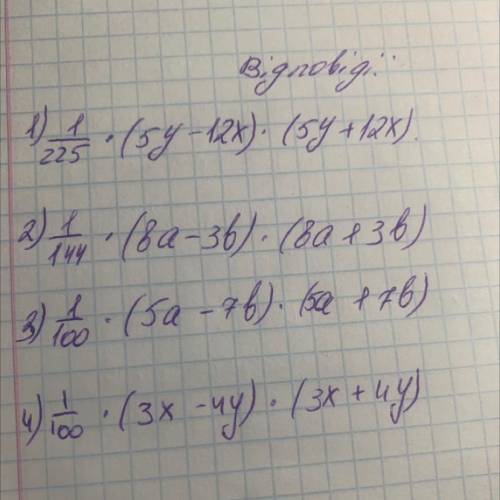 Відповіді:
1) 1/225 · (5y - 12x) · (5y + 12x).
2) 1/144 · (8a - 3b) · (8a + 3b)
3) 1/100 · (5a - 7b) · (5a + 7b)
4) 1/100 · (3x - 4y) · (3x + 4y)